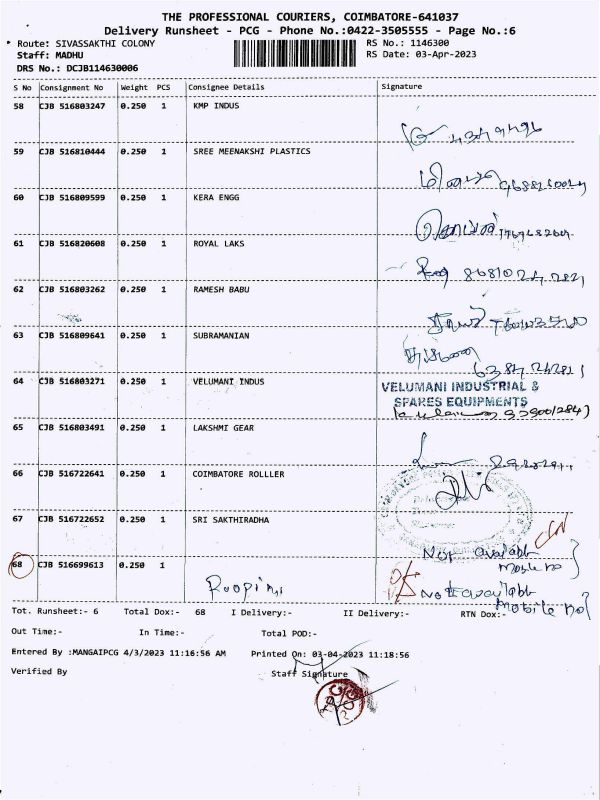 THE PROFESSIONAL COURIERS, COIMBATORE-641037
Delivery Runsheet - PCG - Phone No.:0422-3505555 - Page No.:6
Route: SIVASSAKTHI COLONY RS No.: 1146300
Staff: MADHU RS Date: 03-Apr-2023
DRS No.: DCJB114630006
S No Consignment No Weight PCS Consignee Details Signature
58 CJB 516803247 0.250 1 KMP INDUS
59 CJB 516810444 0.250 1 SREE MEENAKSHI PLASTICS
60 CJB 516809599 0.250 1 KERA ENGG
61 CJB 516820608 0.250 1 ROYAL LAKS
62 CJB 516803262 0.250 1 RAMESH BABU
63 CJB 516809641 0.250 1 SUBRAMANIAN
64 CJB 516803271 0.250 1 VELUMANI INDUS
VELUMANI INDUSTRIAL &
SPARES EQUIPMENTS
65 CJB 516803491 0.250 1 LAKSHMI GEAR
66 CJB 516722641 0.250 1 COIMBATORE ROLLLER
67 CJB 516722652 0.250 1 SRI SAKTHIRADHA
Not available
Mobile no
68 CJB 516699613 0.250 1
Roopini
Not available
Mobile no
Tot. Runsheet:- 6 Total Dox:- 68 I Delivery:- II Delivery:- RTN Dox:-
Out Time:- In Time:- Total POD:-
Entered By :MANGAIPCG 4/3/2023 11:16:56 AM Printed On: 03-04-2023 11:18:56
Verified By Staff Signature